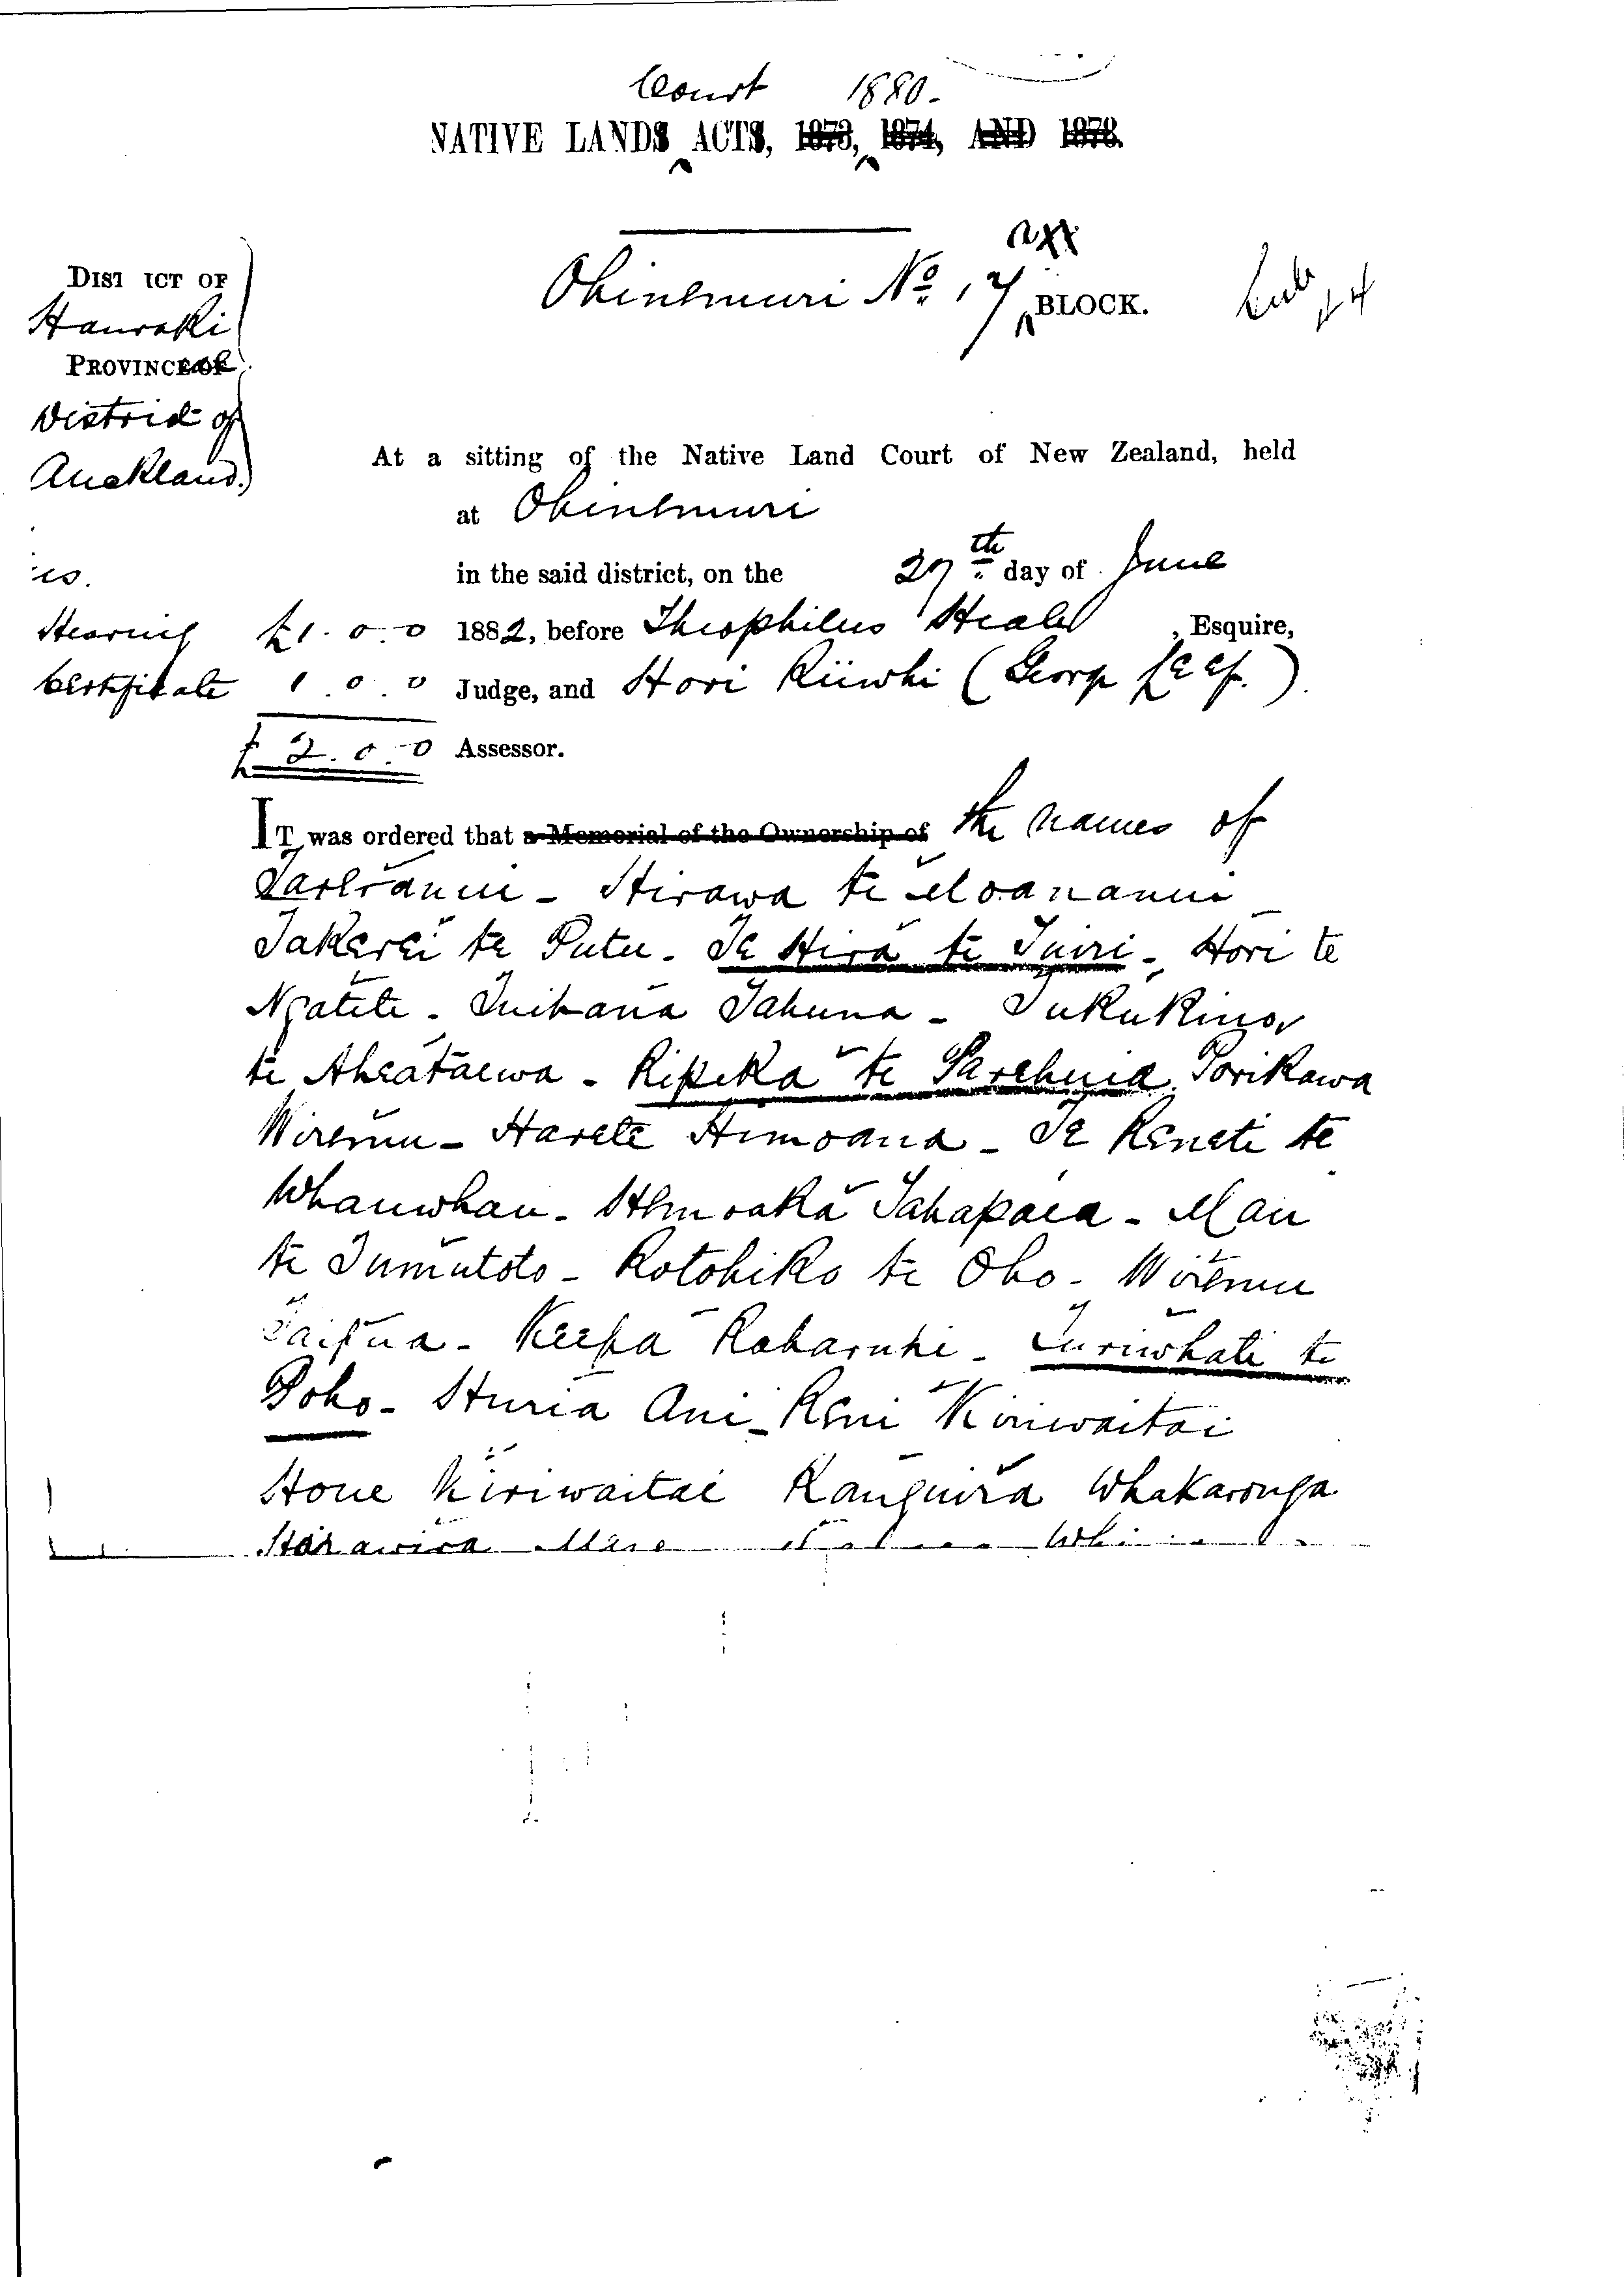 Court 1880.
NATIVE LANDS ACTS, 1873, 1874, AND 1878.
Ohinemuri No. 17 BLOCK.
DIST ICT OF
Hauraki
PROVINCE OF
District of
Auckland.
At a sitting of the Native Land Court of New Zealand, held
at Ohinemuri
in the said district, on the 27th day of June
Hearing £1. 0. 0 1882, before Theophilus Heale, Esquire,
Certificate 1. 0. 0 Judge, and Hori Riiwhi (George Leaf.)
£ 2. 0. 0 Assessor.
IT was ordered that a Memorial of the Ownership of the names of
Tararanui - Hirawa te Moananui -
Takerei te Putu - Te Hira te Tuiri - Hori te
Ngatete - Tuihana Tahuna - Tukukino
te Aheataewa - Ripeka te Parehuia. Porikawa
Wiremu - Harete Himoana - Te Reneti te
Whauwhau - Hemoaka Tahapaea - Mau
te Tumutoto - Rotohiko te Oho - Wiremu
Taipua - Keepa Raharuhi - Turiwhati te
Poho - Huria Ani - Reni Kiriwaitai
Hone Kiriwaitai Rangiuira Whakaronga
Harawira Mere